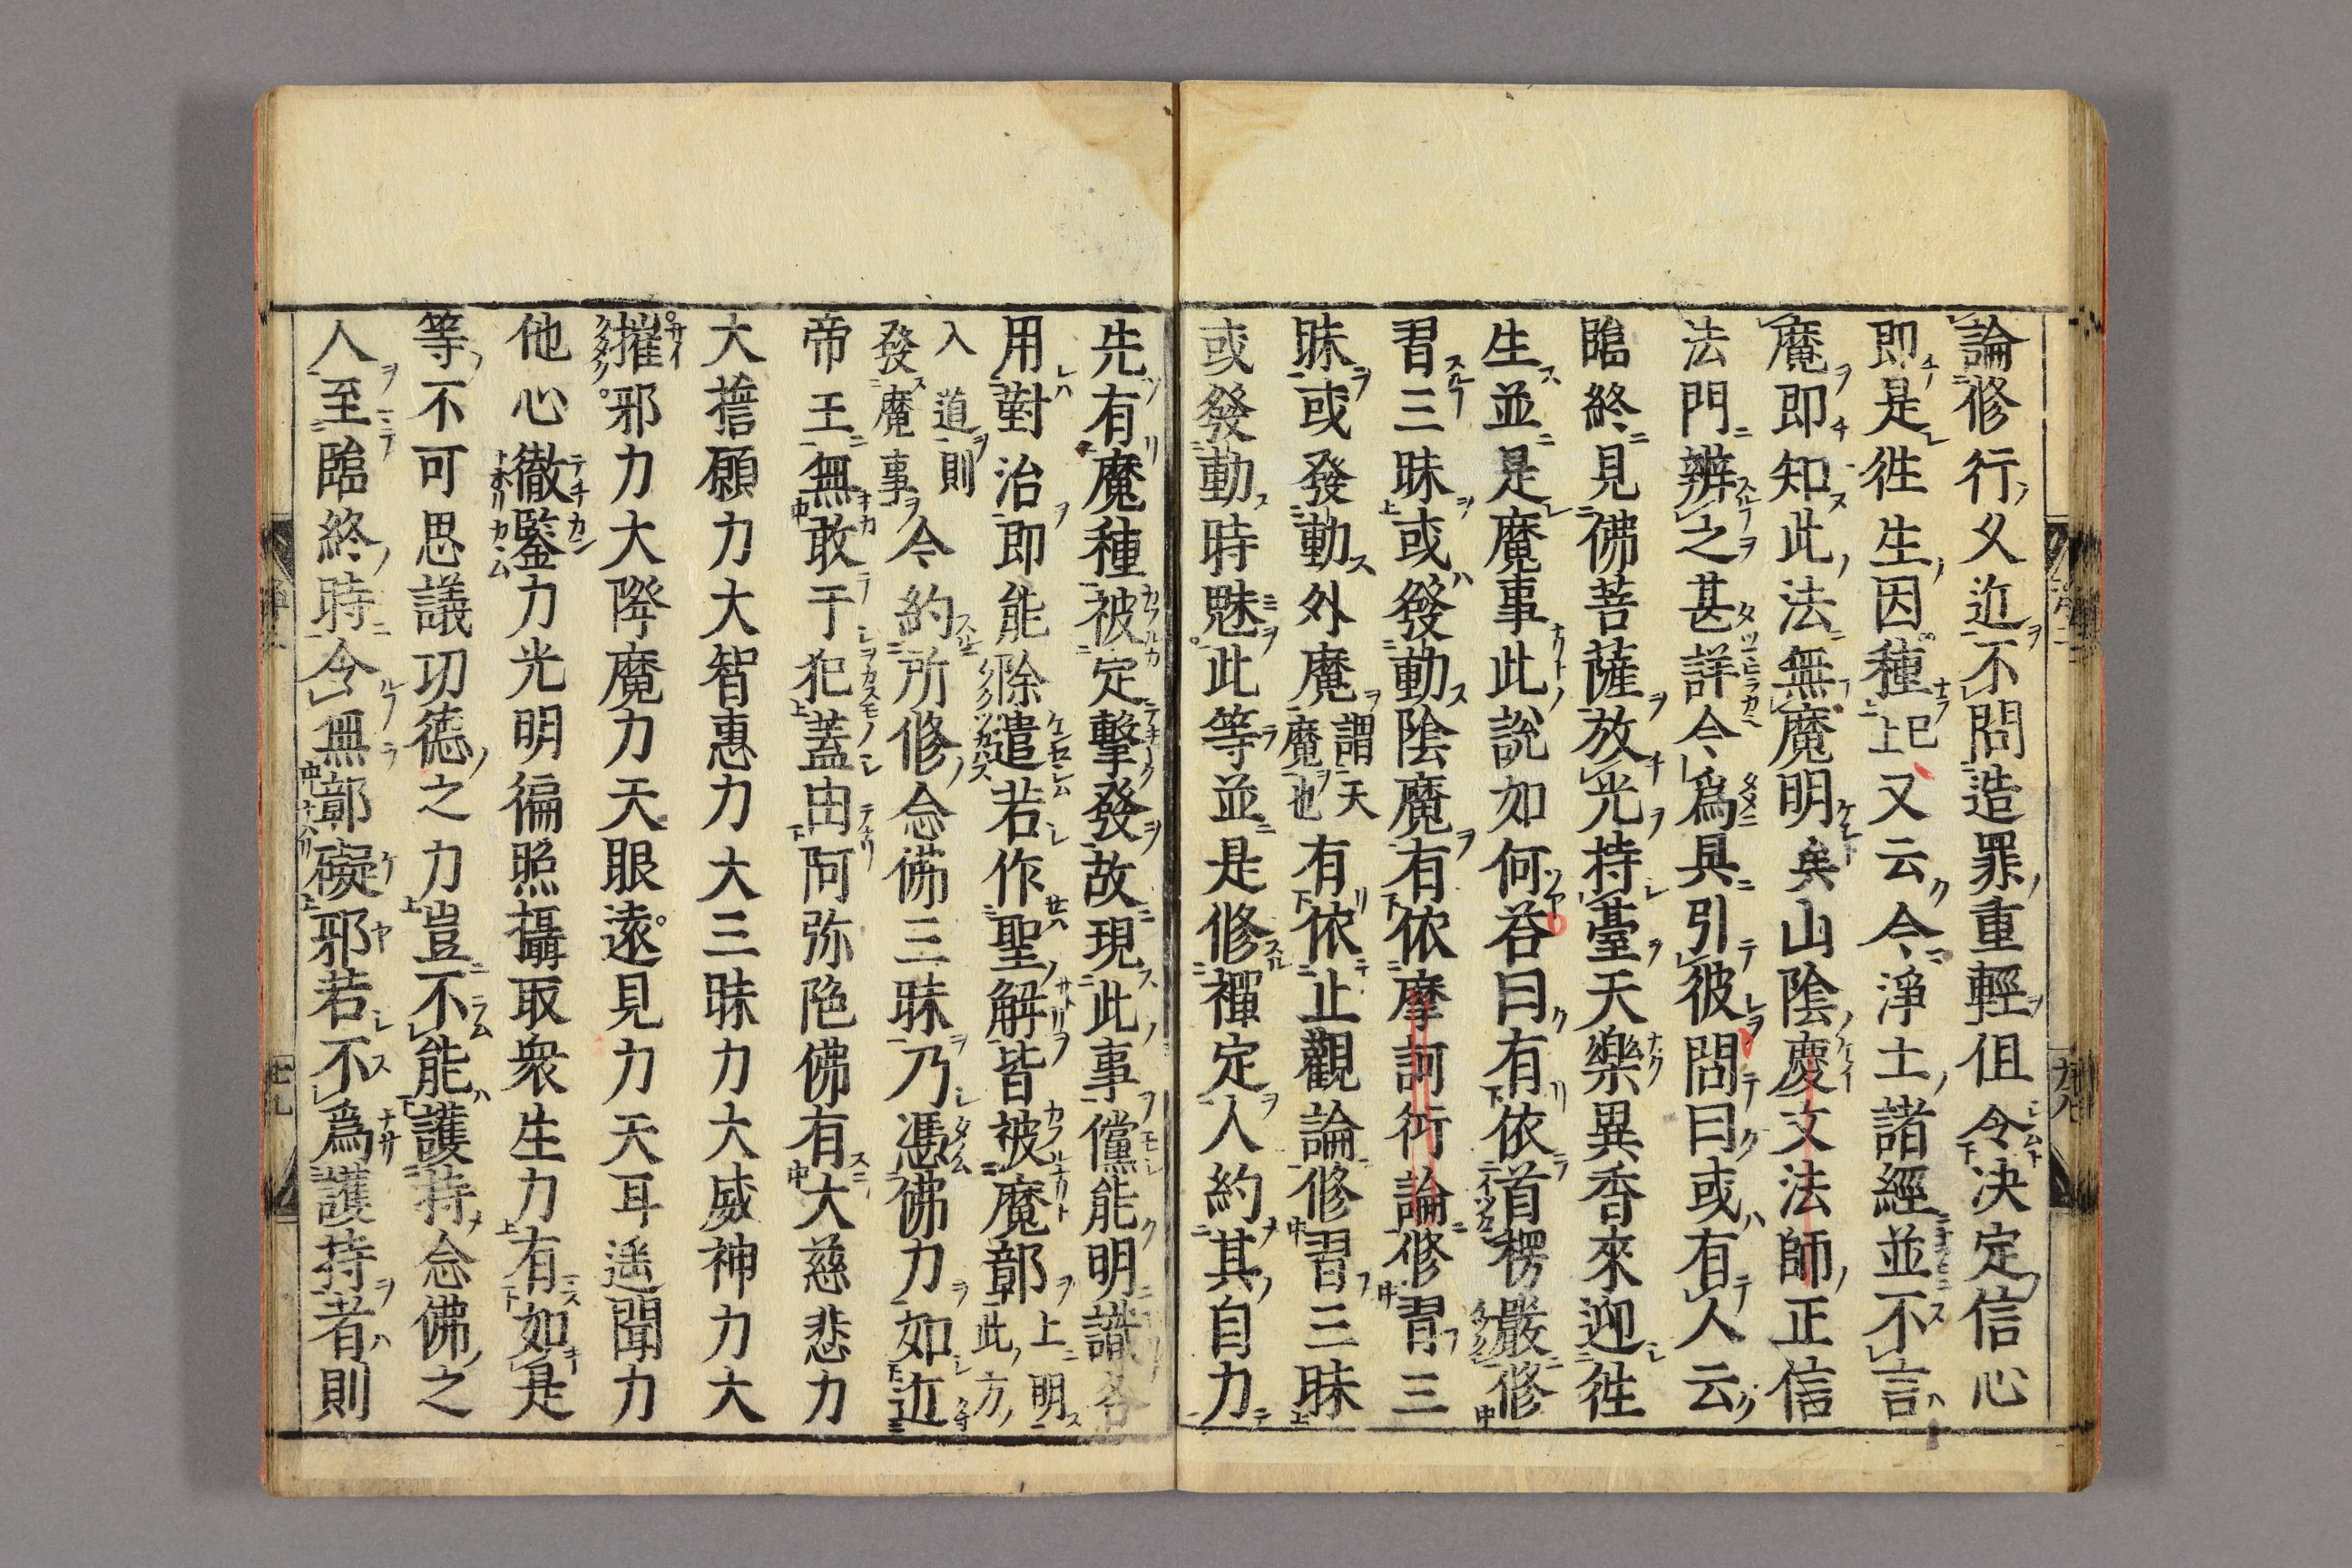 論修行久近不問造罪重輕但令决定信心
即是徃生因種已上又云今淨土諸經並不言
魔即知此法無魔明矣山陰慶文法師正信
法門辨之甚詳今為具引彼問曰或有人云
臨終見佛菩薩放光持臺天樂異香來迎徃
生並是魔事此說如何荅曰有依首楞嚴修
習三昧或發動陰魔有依摩訶衍論修習三
昧或發動外魔謂天魔也有依止觀論修習三昧
或發動時魅此等並是修禪定人約其自力
先有魔種被定擊發故現此事儻能明識各
用對治即能除遣若作聖解皆被魔鄣上明此方
入道則發魔事今約所修念佛三昧乃憑佛力如近
帝王無敢干犯蓋由阿弥陁佛有大慈悲力
大擔願力大智惠力大三昧力大威神力大
摧邪力大降魔力天眼遠見力天耳遥聞力
他心徹鑒力光明徧照攝取衆生力有如是
等不可思議功德之力豈不能護持念佛之
人至臨終時令無鄣礙邪若不為護持者則